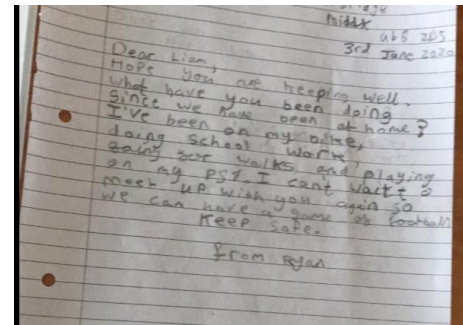 Middx
ub8 2DS
3rd June 2020
Dear Liam,
Hope you are keeping well.
What have you been doing
Since we have been at home?
I've been on my bike,
doing school work
going for walks and playing
on my PS4. I cant wait to
meet up with you again so
we can have a game of football
Keep safe.
from Ryan